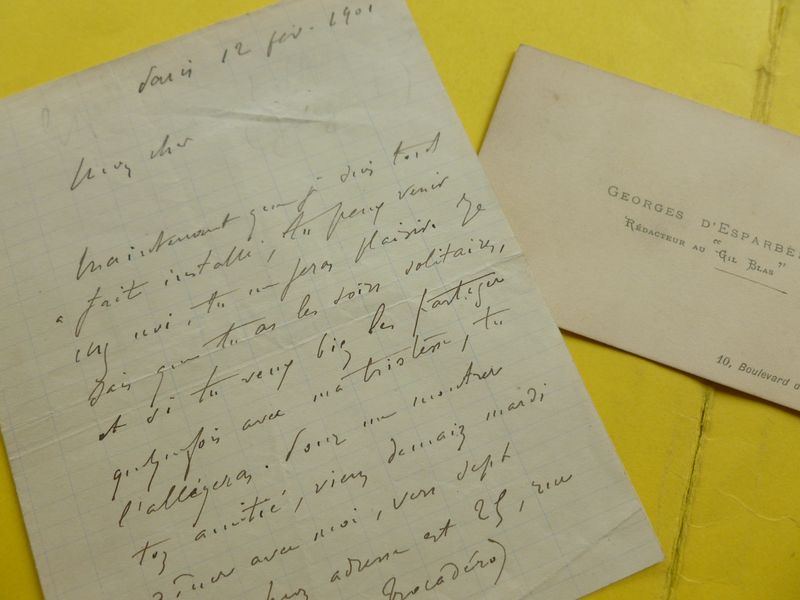 Paris 12 fév. 1901
Mon cher
Maintenant que je suis tout
à fait installé, tu peux venir
chez moi, tu me feras plaisir. Je
sais que tu as les soirs solitaires,
et si tu veux bien les partager
quelquefois avec ma tristesse, tu
l'allégeras. Pour me montrer
ton amitié, viens demain mardi
dîner avec moi, vers sept
adresse est 25, rue
Trocadéro)
GEORGES D'ESPARBÈ
RÉDACTEUR AU "GIL BLAS"
10, Boulevard d